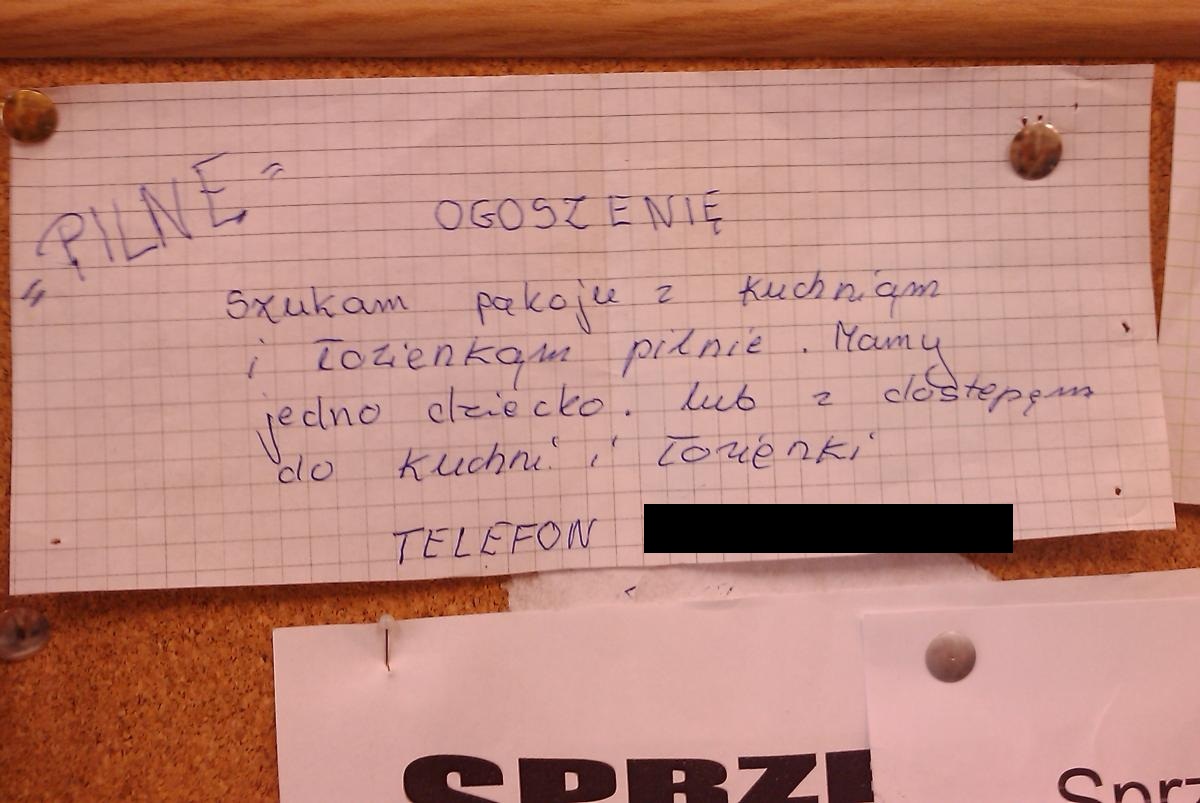 "PILNE"
OGOSZENIĘ
Szukam pąkoju z kuchniąm
i łozienkąm pilnie. Mamy
jedno dziecko. lub z dostepęm
do kuchni i łozienki
TELEFON
SPRZ
Sprz